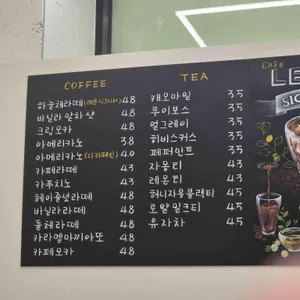 COFFEE
하농채라떼(여름시그니처) 4.8
바닐라 말차 샷 4.8
크림모카 4.8
아메리카노 3.8
아메리카노(디카페인) 4.0
카페라떼 4.3
카푸치노 4.3
헤이즐넛라떼 4.8
바닐라라떼 4.8
돌체라떼 4.8
카라멜마끼아또 4.8
카페모카 4.8
TEA
캐모마일 3.5
루이보스 3.5
얼그레이 3.5
히비스커스 3.5
페퍼민트 3.5
자몽티 4.3
레몬티 4.3
허니자몽블랙티 4.5
로얄밀크티 4.5
유자차 4.5
CAFE